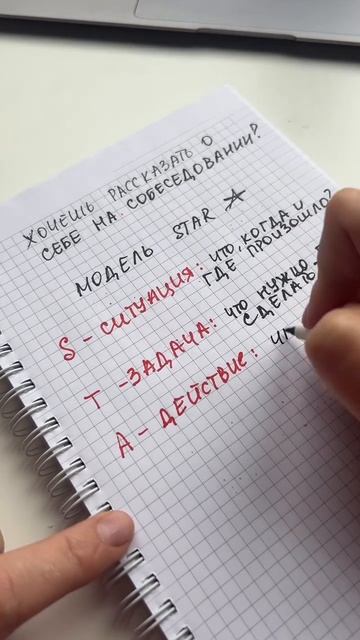 ХОЧЕШЬ РАССКАЗАТЬ О
СЕБЕ НА СОБЕСЕДОВАНИИ?
МОДЕЛЬ STAR ☆
S - СИТУАЦИЯ: ЧТО, КОГДА И
ГДЕ ПРОИЗОШЛО?
T - ЗАДАЧА: ЧТО НУЖНО
СДЕЛАТЬ
A - ДЕЙСТВИЕ: ЧТ